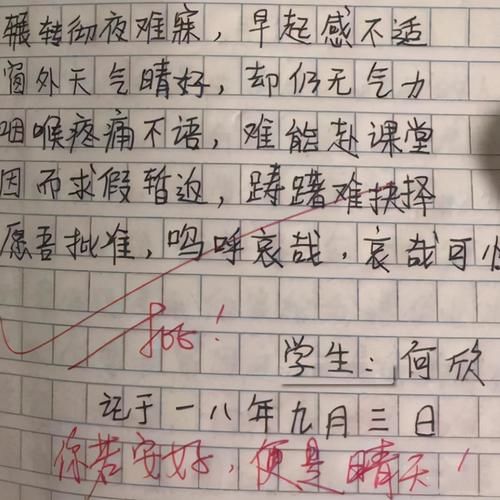 辗转彻夜难寐，早起感不适
窗外天气晴好，却仍无气力
咽喉疼痛不语，难能赴课堂
因而求假暂返，踌躇难抉择
愿吾批准，呜呼哀哉，哀哉可怜
批！
学生：何欣
记于一八年九月三日
你若安好，便是晴天！